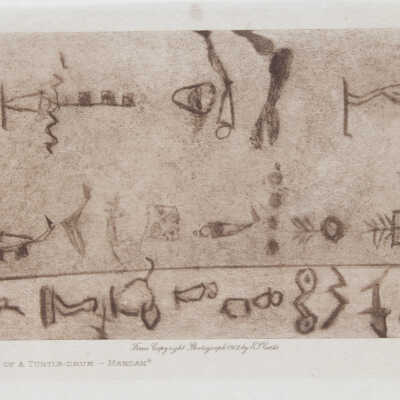 From Copyright Photograph 1908 by E.S. Curtis
OF A TURTLE-DRUM – MANDAN